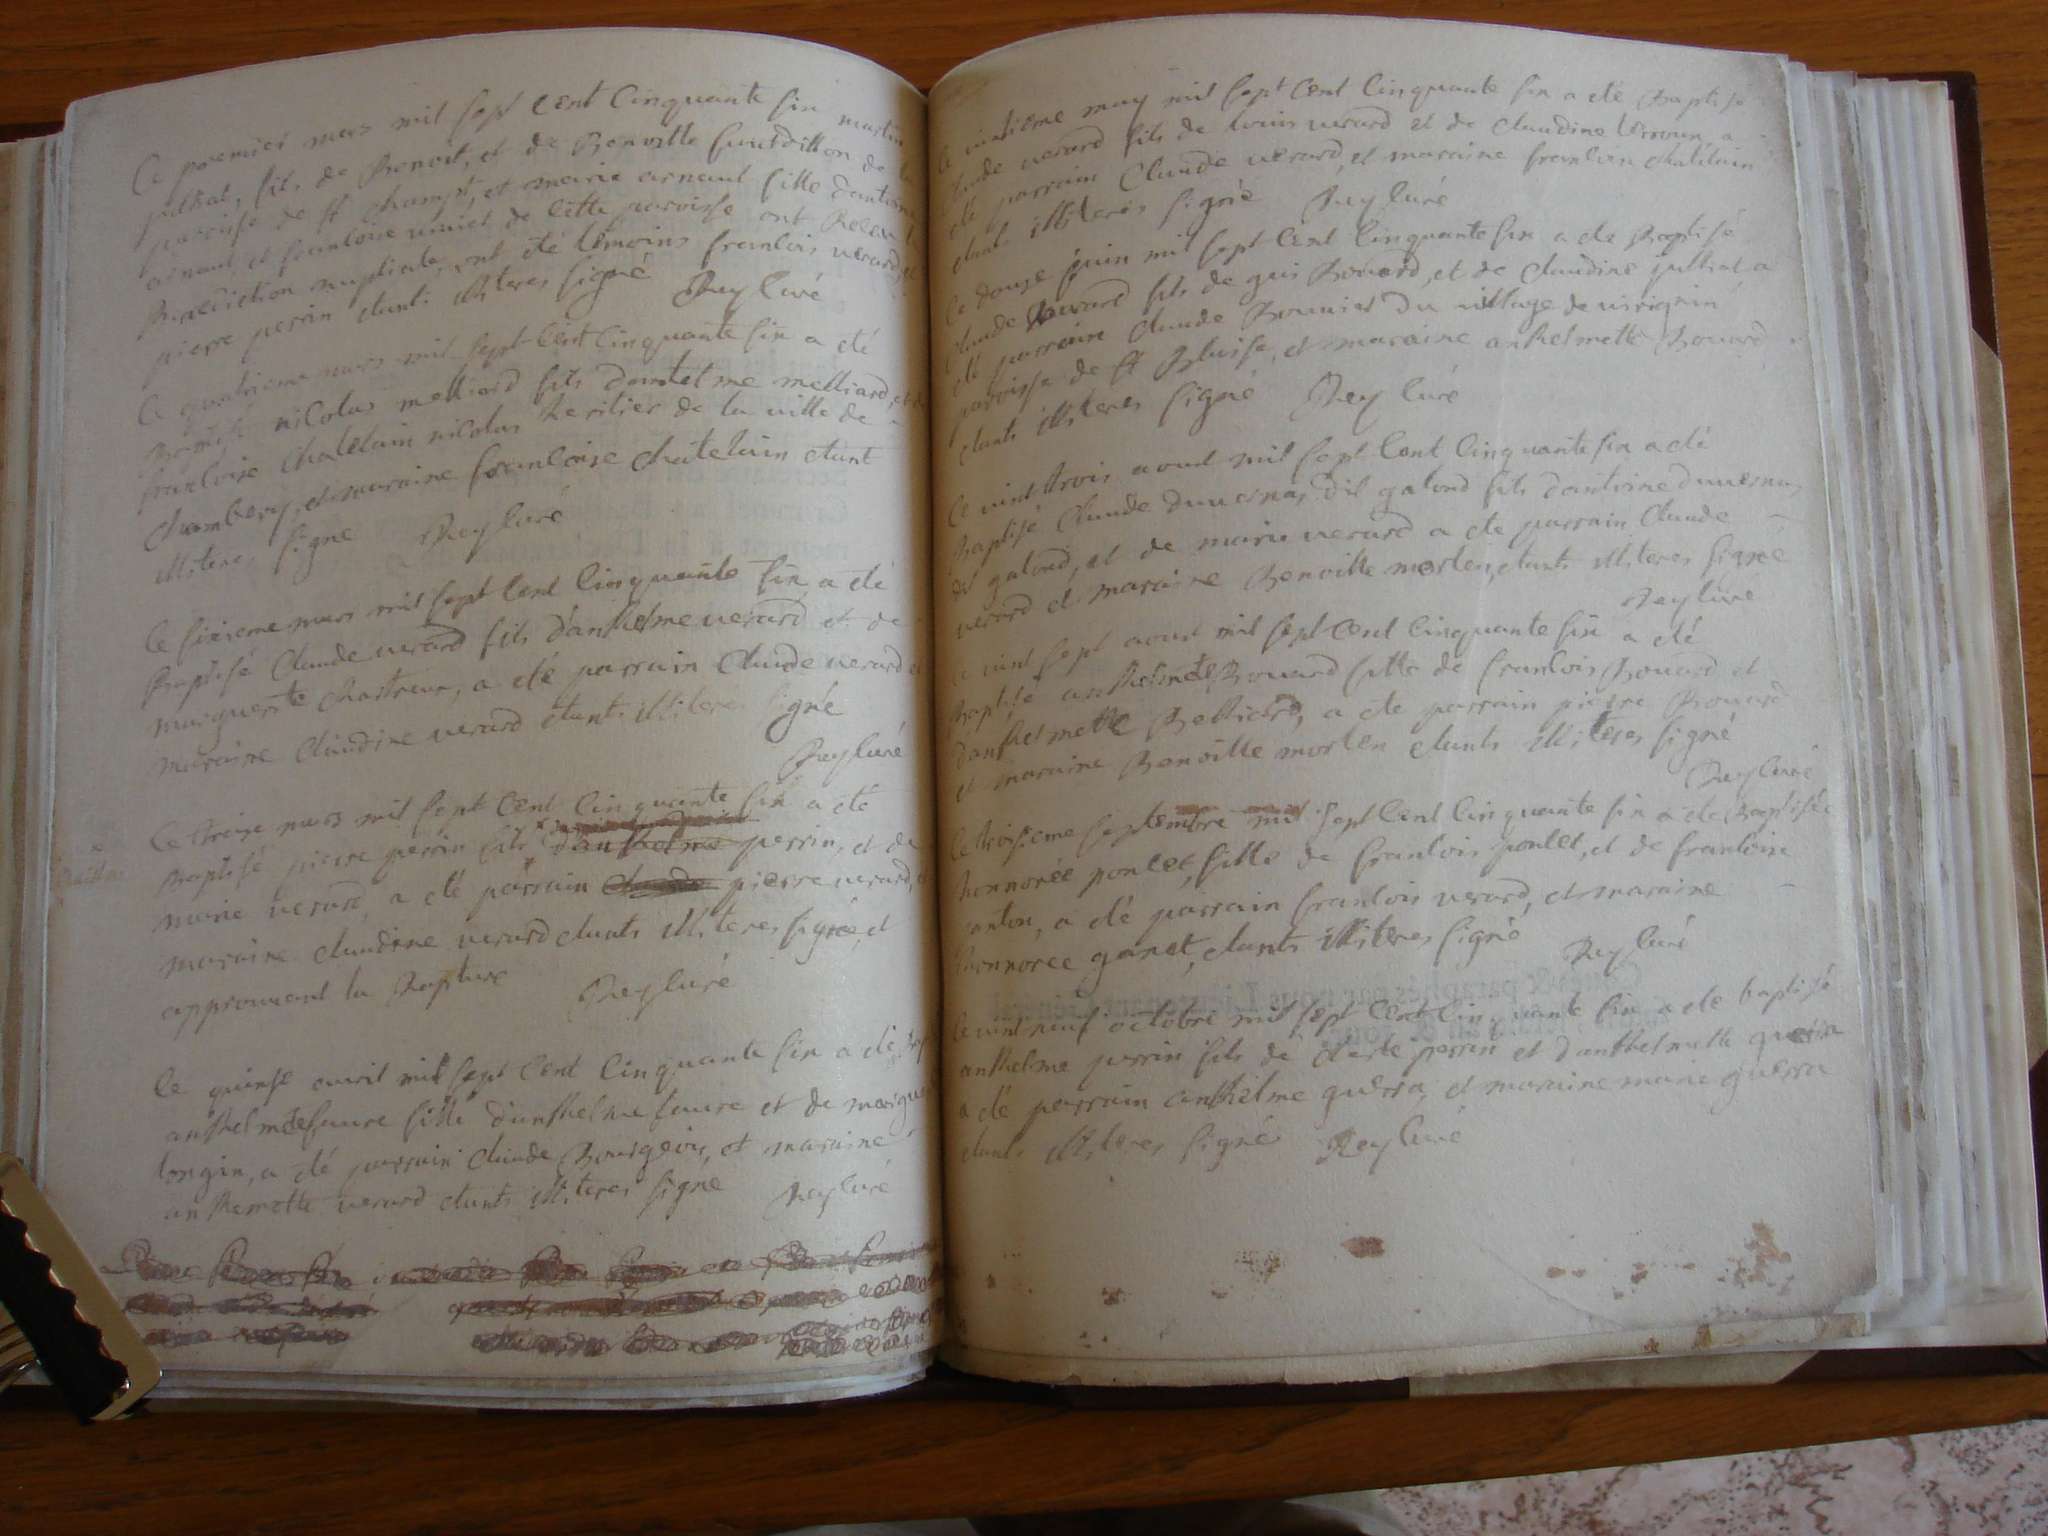 Le premier mars mil sept cent cinquante six martin
juttiat, fils de Benoit, et de Benoitte de la
paroisse de st champt, et marie arnaud fille dantoine
arnaud et francoise de cette paroisse ont Receu la
Benediction nuptiale, ont été témoins francois verard, et
pierre perrin étants illiteres signé Rey curé
Le quatrieme mars mil sept cent cinquante six a été
Baptisé nicolas melliard fils dantelme melliard, et de
francoise chatelain nicolas heritier de la ville de
chambery, et maraine francoise chatelain étant
illiteres signé Rey curé
Le sixieme mars mil sept cent cinquante six a été
Baptisé Claude verard fils danthelme verard et de
marguerite chastreur, a été parrain Claude verard et
maraine Claudine verard étants illiteres signé
Rey curé
Le treize mars mil sept cent cinquante six a été
Baptisé pierre perrin fils danthelme perrin, et de
marie verard, a été parrain claude pierre verard, et
maraine claudine verard étants illiteres signé, et
approuvant la Rapture Rey curé
Le quinse avril mil sept cent cinquante six a été Bap
anthelmette favre fille danthelme favre et de margue
longin, a été parrain Claude Bourgeois, et maraine
anthemette verard étants illiteres signé Rey curé
Le vintieme may mil sept cent cinquante six a été Baptisé
Claude verard fils de louis verard et de claudine a
été parrain Claude verard, et maraine francoise chatelain
étants illiteres signé Rey curé
Le douze juin mil sept cent cinquante six a été Baptisé
Claude Bovard fils de guis Bovard, et de claudine juttiat a
été parrain claude Bounier du village de virignin
paroisse de st Blaise, et maraine anthelmette Bovard
étants illiteres signé Rey curé
Le vint trois aout mil sept cent cinquante six a été
Baptisé Claude duvernay dit galond fils dantoine duvernay
dit galond, et de marie verard a été parrain Claude
verard et maraine Benoitte morten, étants illiteres signé
Rey curé
Le vint sept aout mil sept cent cinquante six a été
Baptisé anthelmette Bovard fille de francois Bovard et
danthelmette Belliard, a été parrain pierre Bovard
et maraine Benoitte morten étants illiteres signé
Rey curé
Le troisieme septembre mil sept cent cinquante six a été Baptisée
honnorée poncet, fille de francois poncet, et de francoise
canton, a été parrain francois verard, et maraine
honnorée ganet, étants illiteres signé Rey curé
Le vint neuf octobre mil sept cent cinquante six a été baptisé
anthelme perrin fils de claude perrin et danthelmette guerra
a été parrain anthelme guerra, et maraine marie guerra
étants illiteres signé Rey curé